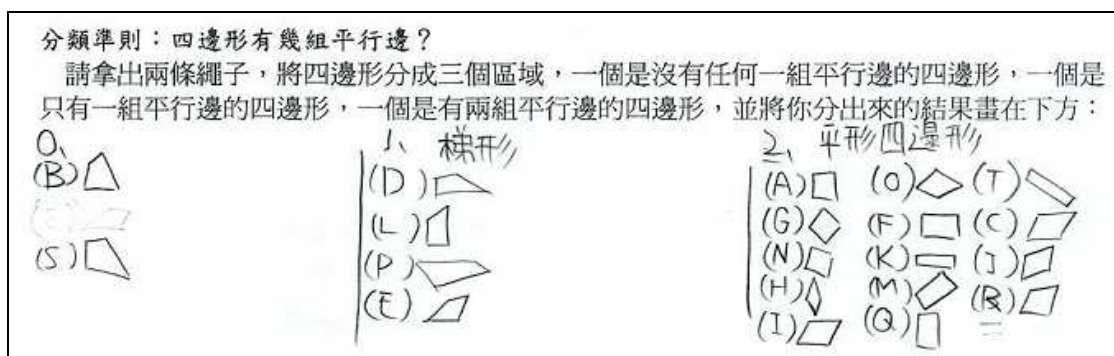 分類準則：四邊形有幾組平行邊？
請拿出兩條繩子，將四邊形分成三個區域，一個是沒有任何一組平行邊的四邊形，一個是
只有一組平行邊的四邊形，一個是有兩組平行邊的四邊形，並將你分出來的結果畫在下方：
0、
(B)
(S)
1、梯形
(D)
(L)
(P)
(E)
2、平形四邊形
(A) (O) (T)
(G) (F) (C)
(N) (K) (J)
(H) (M) (R)
(I) (Q)